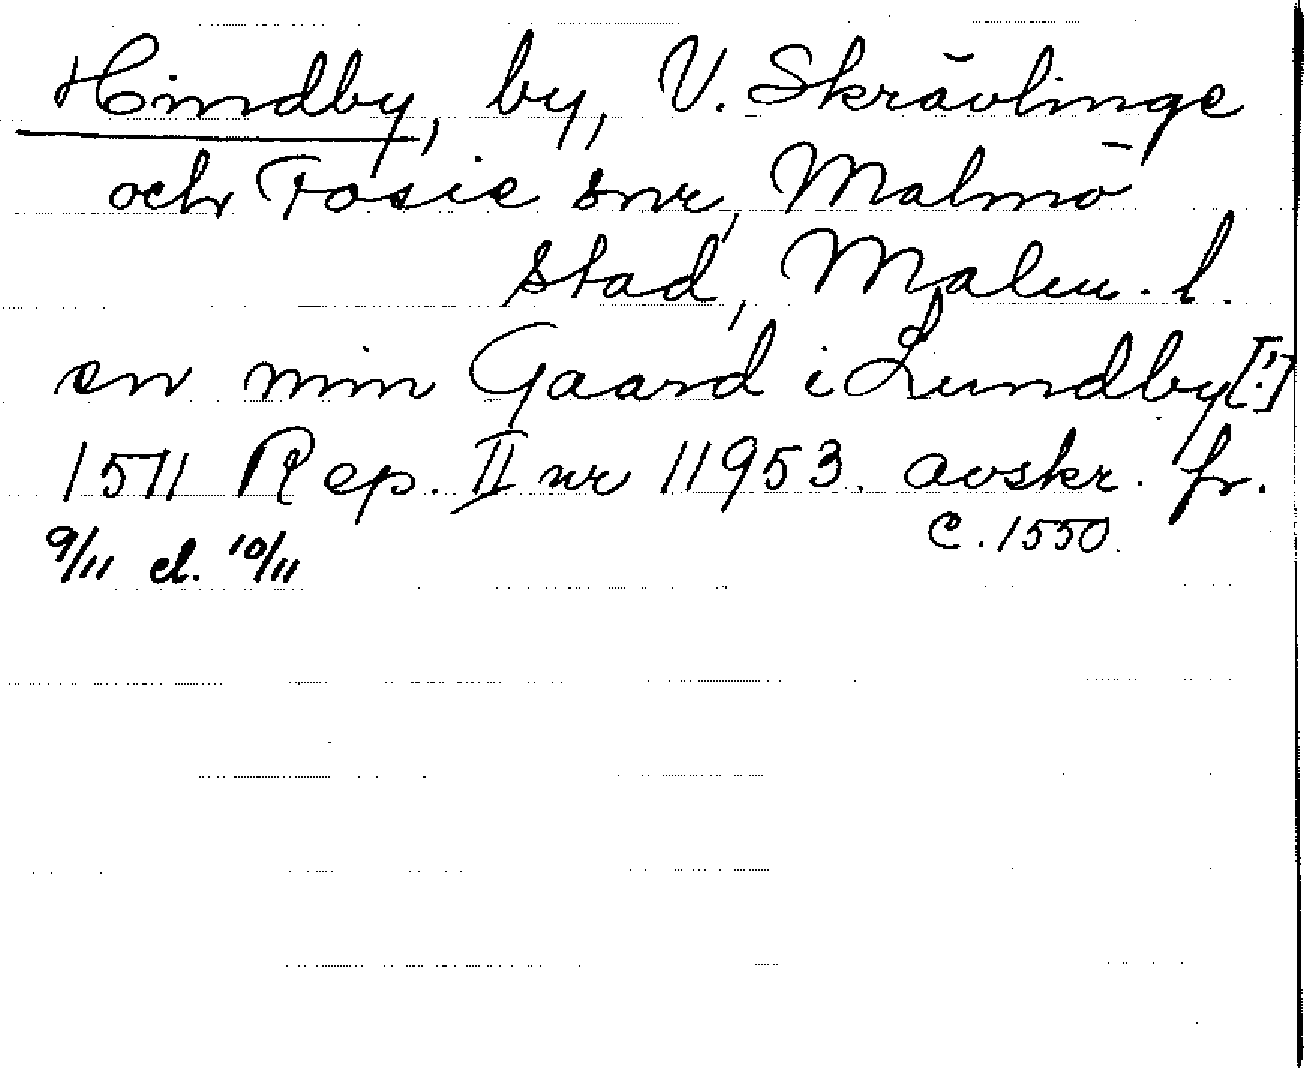 Hindby, by, V. Skrävlinge
och Fosie snr, Malmö
stad, Malm. l.
en min Gaard i Lundby [!]
1511 Rep. II nr 11953. avskr. fr.
c. 1550.
9/11 el. 10/11